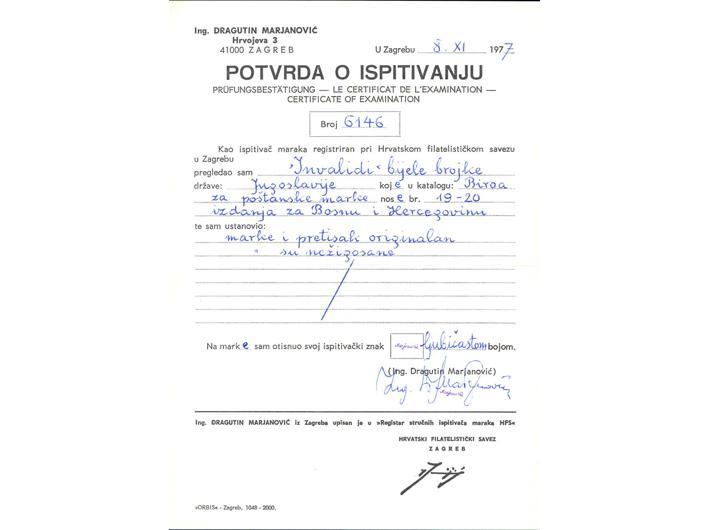 Ing. DRAGUTIN MARJANOVIĆ
Hrvojeva 3
41000 ZAGREB
U Zagrebu 8. XI 1977
POTVRDA O ISPITIVANJU
PRÜFUNGSBESTÄTIGUNG — LE CERTIFICAT DE L'EXAMINATION —
CERTIFICATE OF EXAMINATION
Broj 6146
Kao ispitivač maraka registriran pri Hrvatskom filatelističkom savezu
u Zagrebu
pregledao sam »Invalidi« bijele brojke
države: Jugoslavije koje u katalogu: Biroa
za poštanske marke nose br. 19-20
izdanja za Bosnu i Hercegovinu
te sam ustanovio:
marke i pretisak originalan
" su nežigosane
Na marke sam otisnuo svoj ispitivački znak ljubičastom bojom.
(Ing. Dragutin Marjanović)
Ing. DRAGUTIN MARJANOVIĆ iz Zagreba upisan je u »Registar stručnih ispitivača maraka HFS«
HRVATSKI FILATELISTIČKI SAVEZ
ZAGREB
»ORBIS« - Zagreb, 1048 - 2000.